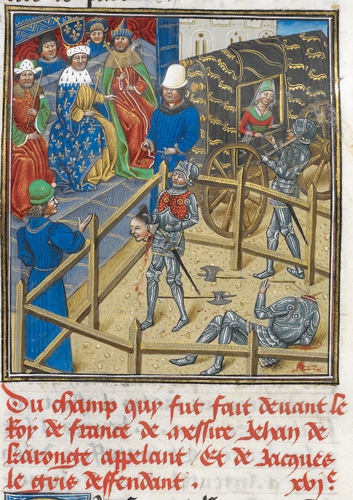 Du champ quy fut fait deuant le
Roy de france de messire Jehan de
karonete appelant Et de Jacques
le gris deffendant xvjᵉ